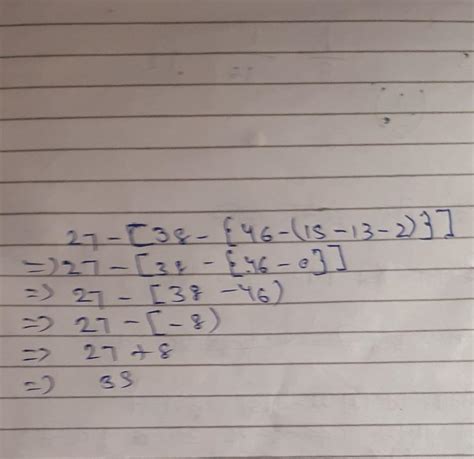 27 - [38 - {46 - (15 - 13 - 2)}]
=> 27 - [38 - {46 - 0}]
=> 27 - [38 - 46)
=> 27 - [-8)
=> 27 + 8
=> 35